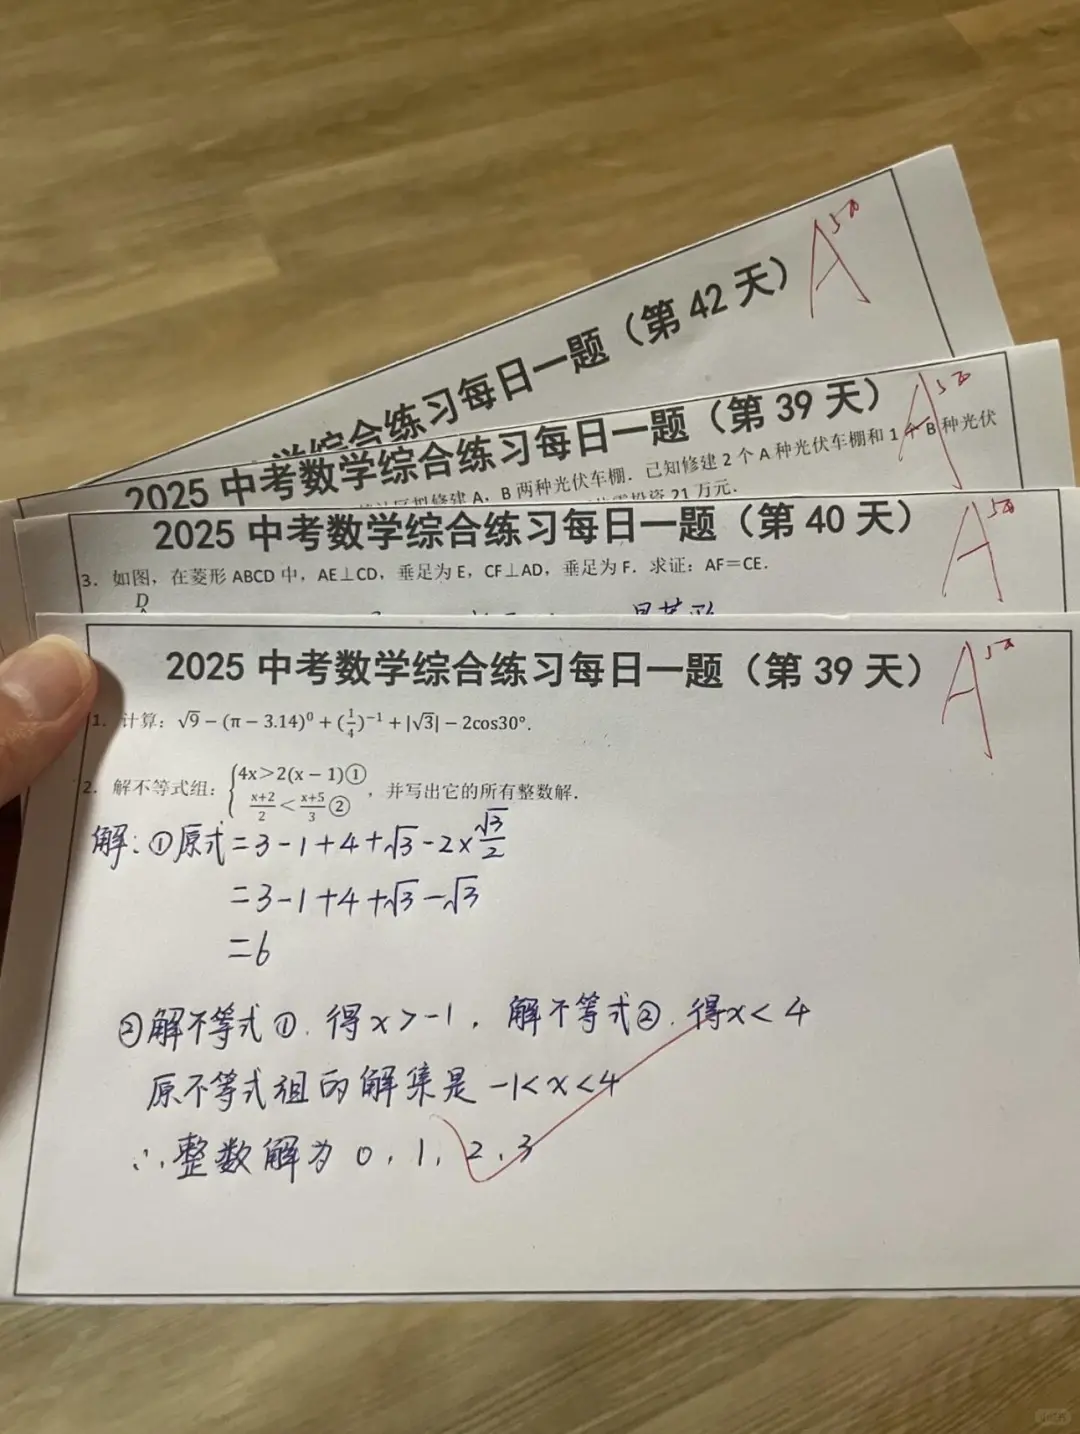 综合练习每日一题（第 42 天）
A
2025 中考数学综合练习每日一题（第 39 天）
A
A，B 两种光伏车棚．已知修建 2 个 A 种光伏车棚和 1 个 B 种光伏
投资 21 万元．
2025 中考数学综合练习每日一题（第 40 天）
A
3．如图，在菱形 ABCD 中，AE⊥CD，垂足为 E，CF⊥AD，垂足为 F．求证：AF＝CE．
D
2025 中考数学综合练习每日一题（第 39 天）
A
1．计算：√9－(π－3.14)⁰＋(1/4)⁻¹＋|√3|－2cos30°．
2．解不等式组：{4x＞2(x－1)①
(x+2)/2＜(x+5)/3②，并写出它的所有整数解．
解：①原式＝3－1＋4＋√3－2×√3/2
＝3－1＋4＋√3－√3
＝6
②解不等式①，得x＞－1，解不等式②，得x＜4
原不等式组的解集是 －1＜x＜4
∴整数解为 0，1，2，3